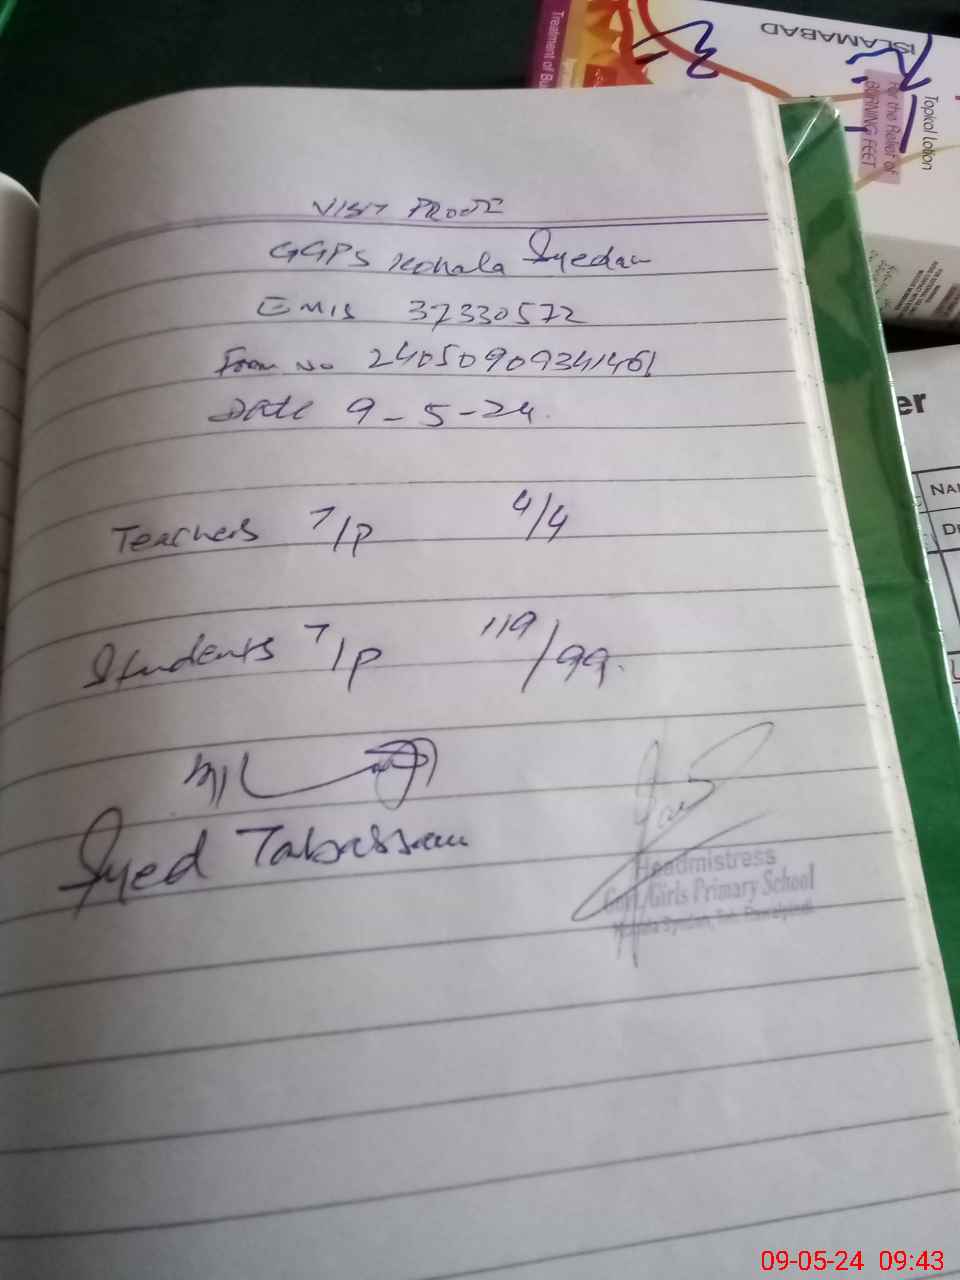 VISIT PROOF
GGPS Kohala Syedan
EMIS 37330572
Form No 24050909341461
Date 9-5-24.
Teachers T/P 4/4
Students T/P 119/99.
Syed Tabassam
Headmistress
Govt. Girls Primary School
Treatment of Bu
ISLAMABAD
For the Relief of
BURNING FEET
Topical Lotion
er
NA
09-05-24 09:43